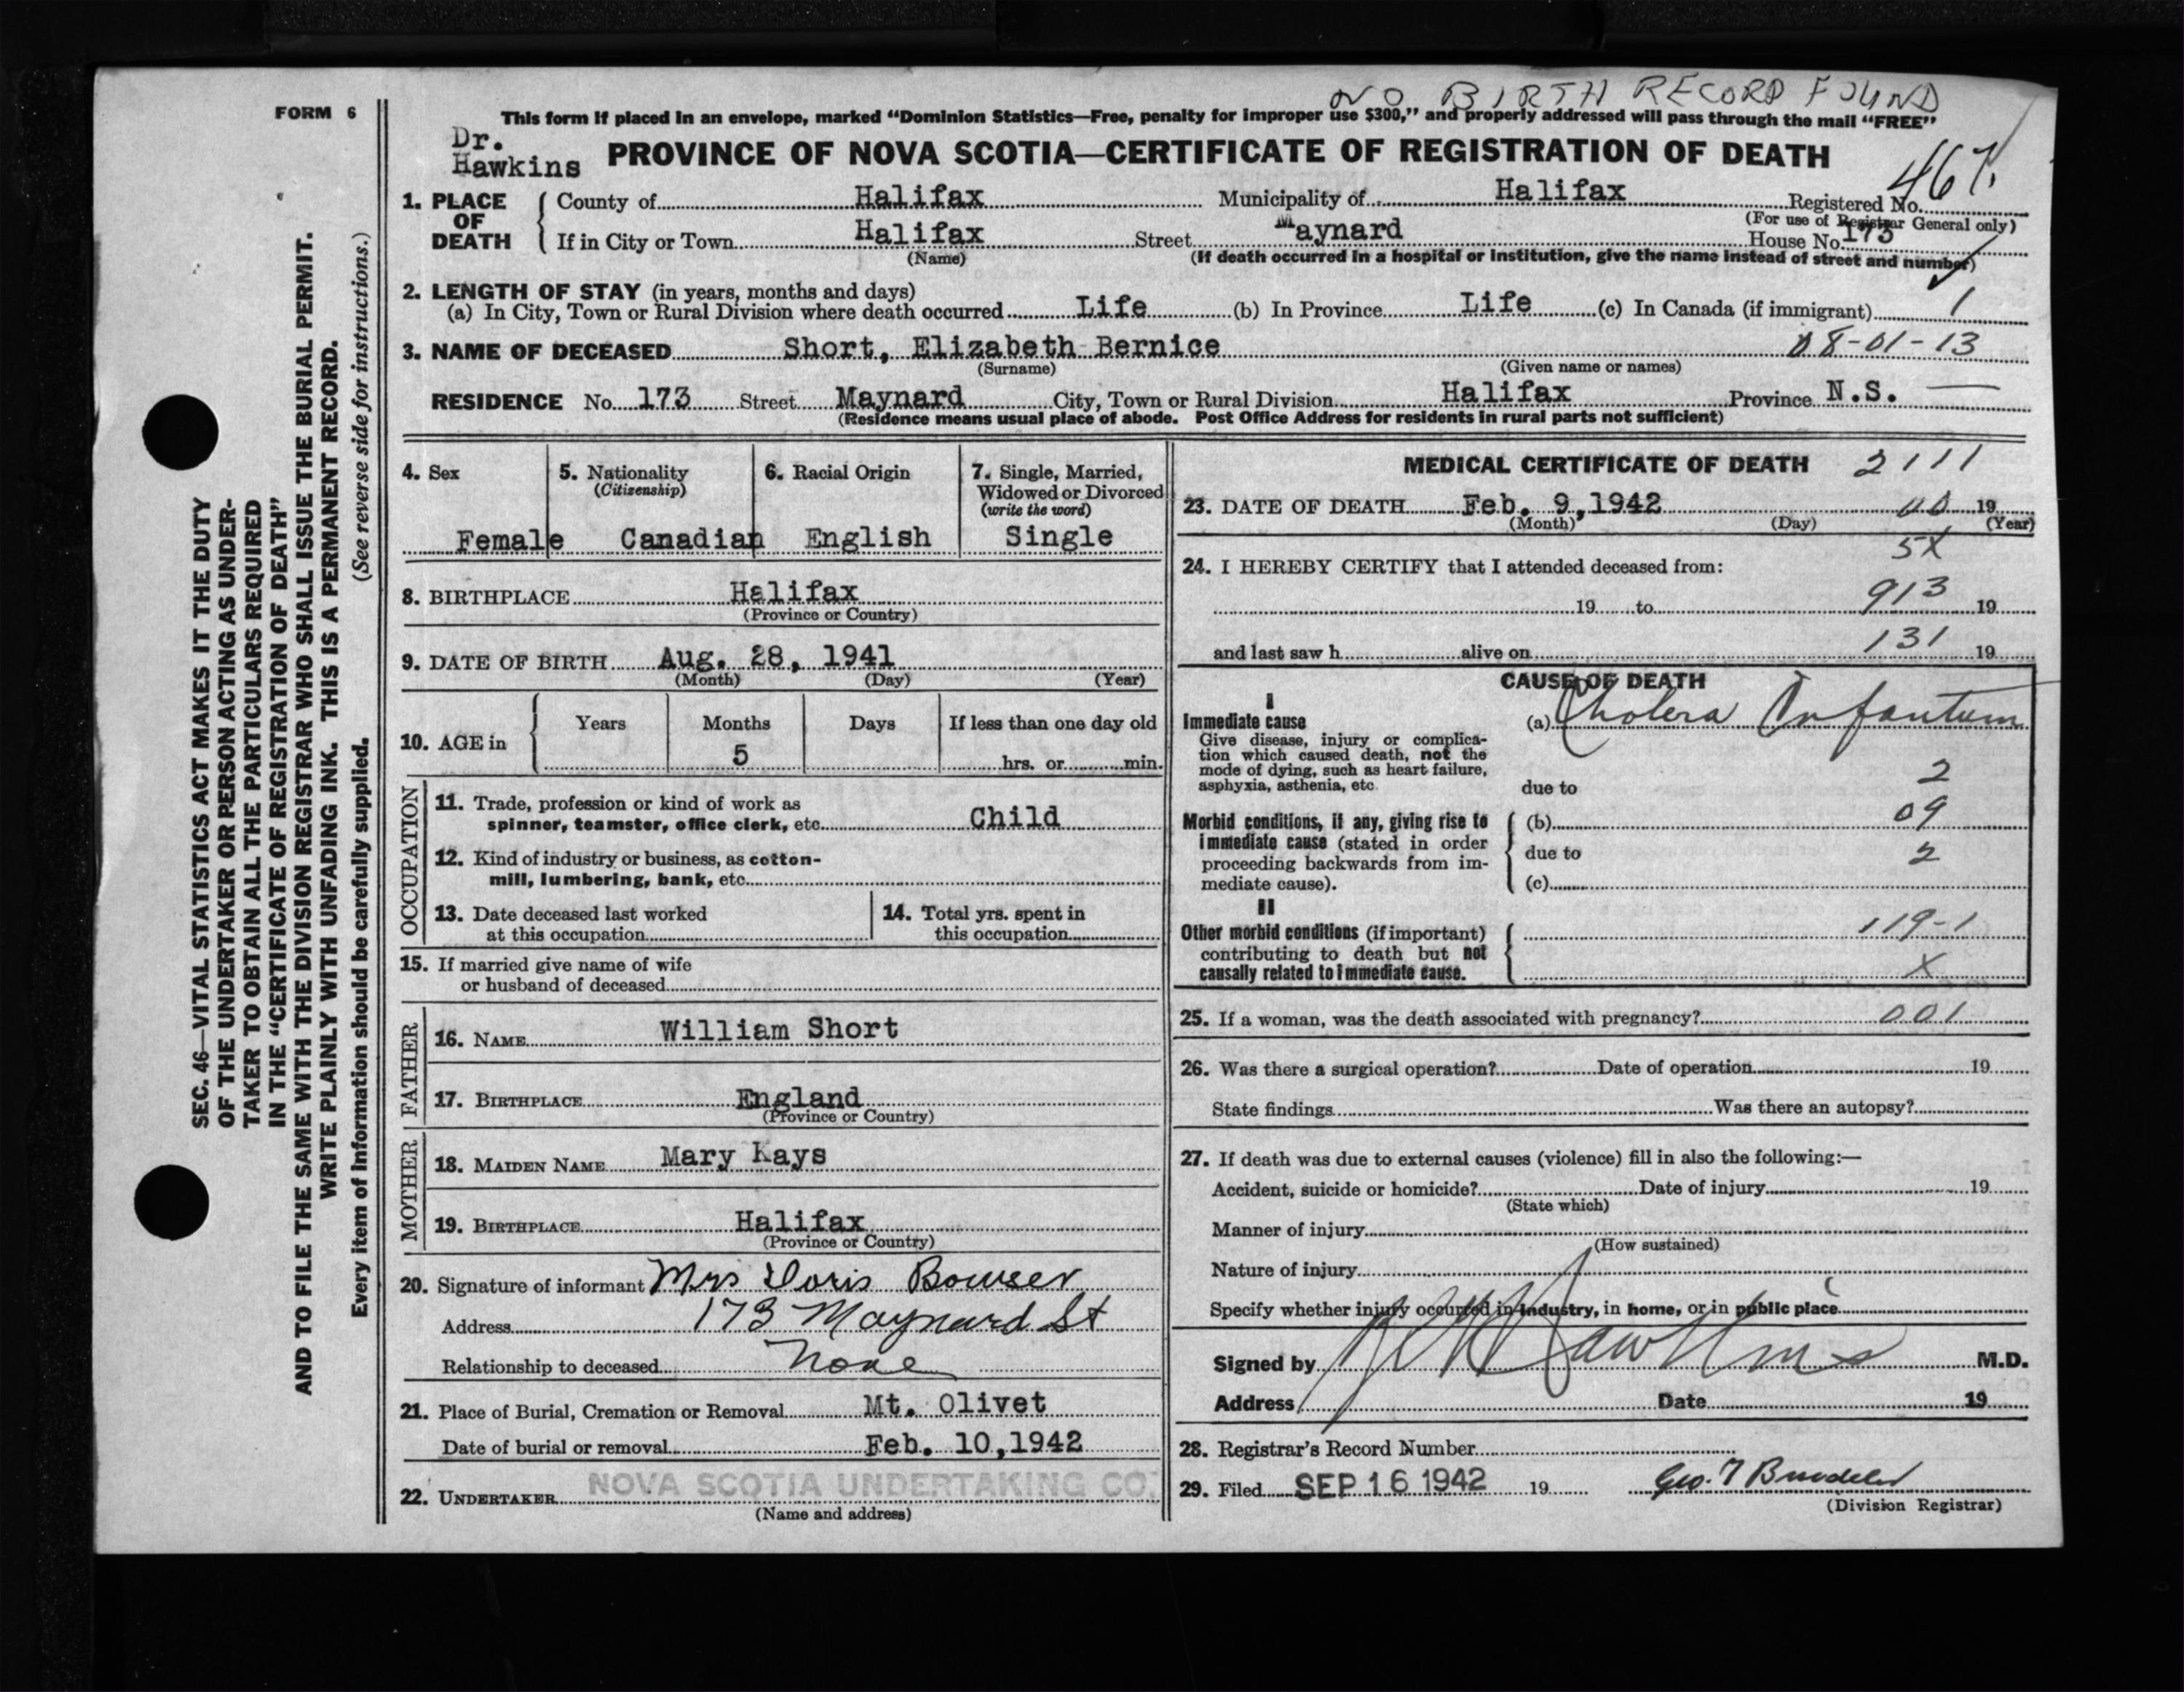 NO BIRTH RECORD FOUND
FORM 6
This form if placed in an envelope, marked “Dominion Statistics—Free, penalty for improper use $300,” and properly addressed will pass through the mail “FREE”
Dr.
Hawkins
PROVINCE OF NOVA SCOTIA—CERTIFICATE OF REGISTRATION OF DEATH
467.
1. PLACE OF DEATH
County of Halifax Municipality of Halifax Registered No.
(For use of Registrar General only)
If in City or Town Halifax Street Maynard House No. 173
(Name) (If death occurred in a hospital or institution, give the name instead of street and number)
2. LENGTH OF STAY (in years, months and days)
(a) In City, Town or Rural Division where death occurred Life (b) In Province Life (c) In Canada (if immigrant) 1
3. NAME OF DECEASED Short, Elizabeth Bernice 08-01-13
(Surname) (Given name or names)
RESIDENCE No. 173 Street Maynard City, Town or Rural Division Halifax Province N.S. —
(Residence means usual place of abode. Post Office Address for residents in rural parts not sufficient)
4. Sex
Female
5. Nationality
(Citizenship)
Canadian
6. Racial Origin
English
7. Single, Married,
Widowed or Divorced
(write the word)
Single
8. BIRTHPLACE Halifax
(Province or Country)
9. DATE OF BIRTH Aug. 28, 1941
(Month) (Day) (Year)
10. AGE in
Years Months Days If less than one day old
5 hrs. or min.
OCCUPATION
11. Trade, profession or kind of work as
spinner, teamster, office clerk, etc. Child
12. Kind of industry or business, as cotton-
mill, lumbering, bank, etc.
13. Date deceased last worked
at this occupation
14. Total yrs. spent in
this occupation
15. If married give name of wife
or husband of deceased
FATHER
16. NAME William Short
17. BIRTHPLACE England
(Province or Country)
MOTHER
18. MAIDEN NAME Mary Kays
19. BIRTHPLACE Halifax
(Province or Country)
20. Signature of informant Mrs Doris Bowser
Address 173 Maynard St
Relationship to deceased None
21. Place of Burial, Cremation or Removal Mt. Olivet
Date of burial or removal Feb. 10,1942
22. UNDERTAKER NOVA SCOTIA UNDERTAKING CO.
(Name and address)
MEDICAL CERTIFICATE OF DEATH 2111
23. DATE OF DEATH Feb. 9,1942 19
(Month) (Day) (Year)
5X
24. I HEREBY CERTIFY that I attended deceased from:
19 to 913 19
and last saw h alive on 131 19
CAUSE OF DEATH
I
Immediate cause
Give disease, injury or complica-
tion which caused death, not the
mode of dying, such as heart failure,
asphyxia, asthenia, etc.
(a) Cholera Infantum
2
due to
Morbid conditions, if any, giving rise to
immediate cause (stated in order
proceeding backwards from im-
mediate cause).
(b) 09
due to 2
(c)
II
Other morbid conditions (if important)
contributing to death but not
causally related to immediate cause.
119-1
X
25. If a woman, was the death associated with pregnancy? 001
26. Was there a surgical operation? Date of operation 19
State findings Was there an autopsy?
27. If death was due to external causes (violence) fill in also the following:—
Accident, suicide or homicide? Date of injury 19
(State which)
Manner of injury
(How sustained)
Nature of injury
Specify whether injury occurred in industry, in home, or in public place
Signed by Hawkins M.D.
Address Date 19
28. Registrar's Record Number
29. Filed SEP 16 1942 19 Geo. T
(Division Registrar)
SEC. 46—VITAL STATISTICS ACT MAKES IT THE DUTY
OF THE UNDERTAKER OR PERSON ACTING AS UNDER-
TAKER TO OBTAIN ALL THE PARTICULARS REQUIRED
IN THE “CERTIFICATE OF REGISTRATION OF DEATH”
AND TO FILE THE SAME WITH THE DIVISION REGISTRAR WHO SHALL ISSUE THE BURIAL PERMIT.
WRITE PLAINLY WITH UNFADING INK. THIS IS A PERMANENT RECORD.
Every item of information should be carefully supplied. (See reverse side for instructions.)